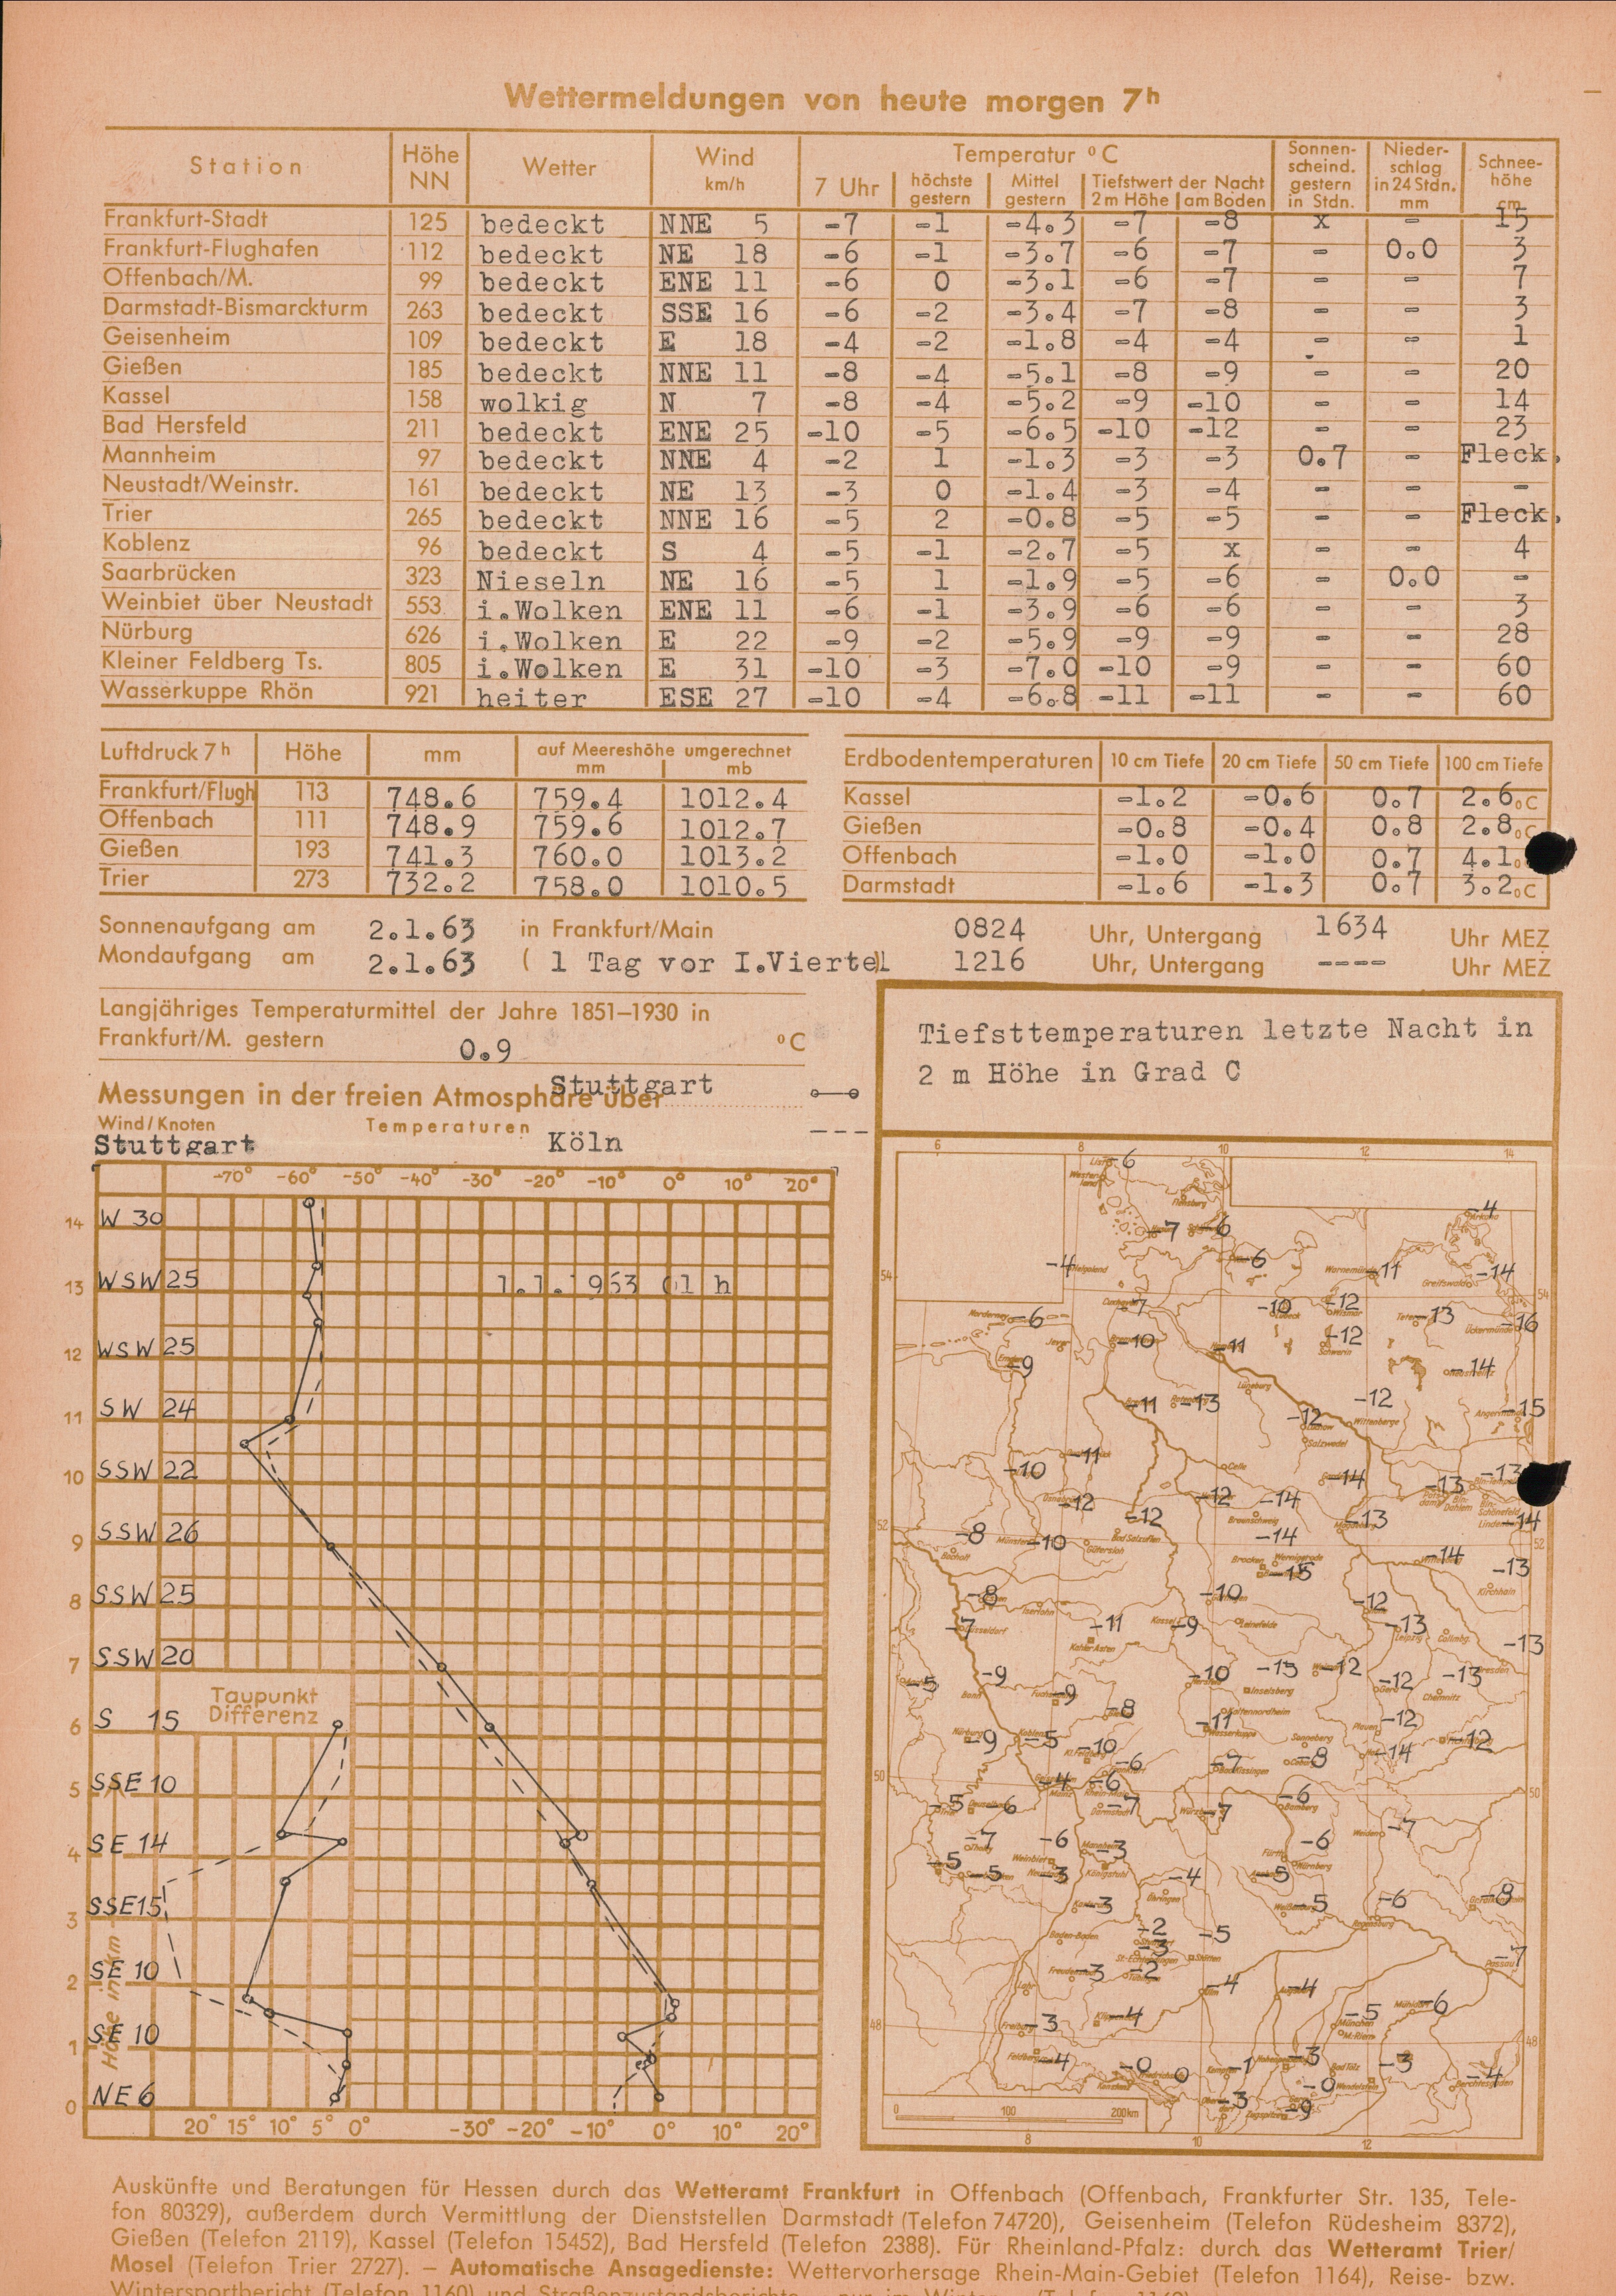 Wettermeldungen von heute morgen 7h
Station Höhe NN Wetter Wind km/h Temperatur °C Sonnenscheind. gestern in Stdn. Niederschlag in 24 Stdn. mm Schneehöhe cm
7 Uhr höchste gestern Mittel gestern Tiefstwert der Nacht 2 m Höhe am Boden
Frankfurt-Stadt 125 bedeckt NNE 5 -7 -1 -4.3 -7 -8 x - 15
Frankfurt-Flughafen 112 bedeckt NE 18 -6 -1 -3.7 -6 -7 - 0.0 3
Offenbach/M. 99 bedeckt ENE 11 -6 0 -3.1 -6 -7 - - 7
Darmstadt-Bismarckturm 263 bedeckt SSE 16 -6 -2 -3.4 -7 -8 - - 3
Geisenheim 109 bedeckt E 18 -4 -2 -1.8 -4 -4 - - 1
Gießen 185 bedeckt NNE 11 -8 -4 -5.1 -8 -9 - - 20
Kassel 158 wolkig N 7 -8 -4 -5.2 -9 -10 - - 14
Bad Hersfeld 211 bedeckt ENE 25 -10 -5 -6.5 -10 -12 - - 23
Mannheim 97 bedeckt NNE 4 -2 1 -1.3 -3 -3 0.7 - Fleck.
Neustadt/Weinstr. 161 bedeckt NE 13 -3 0 -1.4 -3 -4 - - -
Trier 265 bedeckt NNE 16 -5 2 -0.8 -5 -5 - - Fleck.
Koblenz 96 bedeckt S 4 -5 -1 -2.7 -5 x - - 4
Saarbrücken 323 Nieseln NE 16 -5 1 -1.9 -5 -6 - 0.0 -
Weinbiet über Neustadt 553 i.Wolken ENE 11 -6 -1 -3.9 -6 -6 - - 3
Nürburg 626 i.Wolken E 22 -9 -2 -5.9 -9 -9 - - 28
Kleiner Feldberg Ts. 805 i.Wolken E 31 -10 -3 -7.0 -10 -9 - - 60
Wasserkuppe Rhön 921 heiter ESE 27 -10 -4 -6.8 -11 -11 - - 60
Luftdruck 7h Höhe mm auf Meereshöhe umgerechnet mm mb
Frankfurt/Flugh 113 748.6 759.4 1012.4
Offenbach 111 748.9 759.6 1012.7
Gießen 193 741.3 760.0 1013.2
Trier 273 732.2 758.0 1010.5
Erdbodentemperaturen 10 cm Tiefe 20 cm Tiefe 50 cm Tiefe 100 cm Tiefe
Kassel -1.2 -0.6 0.7 2.6 °C
Gießen -0.8 -0.4 0.8 2.8 °C
Offenbach -1.0 -1.0 0.7 4.1
Darmstadt -1.6 -1.3 0.7 3.2 °C
Sonnenaufgang am 2.1.63 in Frankfurt/Main 0824 Uhr, Untergang 1634 Uhr MEZ
Mondaufgang am 2.1.63 ( 1 Tag vor I.Viertel) 1216 Uhr, Untergang ---- Uhr MEZ
Langjähriges Temperaturmittel der Jahre 1851–1930 in
Frankfurt/M. gestern 0.9 °C
Messungen in der freien Atmosphäre über Stuttgart
Wind/Knoten Temperaturen Köln
Stuttgart
-70° -60° -50° -40° -30° -20° -10° 0° 10° 20°
14 W 30
13 WSW 25 1.1.1963 01 h
12 WSW 25
11 SW 24
10 SSW 22
9 SSW 26
8 SSW 25
7 SSW 20
Taupunkt
Differenz
6 S 15
5 SSE 10
4 SE 14
3 SSE 15
2 SE 10
1 SE 10
0 NE 6
Höhe in km
20° 15° 10° 5° 0° -30° -20° -10° 0° 10° 20°
Tiefsttemperaturen letzte Nacht in
2 m Höhe in Grad C
6 8 10 12 14
-6
-4
-7 -6
-4 Helgoland -6 Warnemünde -11 Greifswald -14
54 54
Norderney -6 -7 -10 -12 -13 -16
-9 -10 -11 -12 -14
-11 -13 Lüneburg -12 -12 Wittenberge -15
Salzwedel
-10 -11 Celle -14 -13 -13
-12 -12 -12 -14 Braunschweig -13 -14
52 52
-8 Bocholt -10 Gütersloh Bad Salzuflen -14 -15 -14 -13 Kirchhain
-8 -7 -11 Kahler Asten Kassel -9 -10 Leinefelde -12 -13 -13
-5 -9 -9 -8 -10 -13 Inselsberg -12 -12 -13 Chemnitz
-9 -5 -10 -6 -11 Wasserkuppe Kaltennordheim -7 Sonneberg -8 -12 -14 -12
50 50
-5 -6 -4 -6 Darmstadt -7 -7 -6 Bamberg Weiden -7
-7 Weinbiet -6 Mannheim -3 Fürth -6 Nürnberg
-5 -5 -3 Königstuhl -4 Öhringen -5
-3 -5 -6 -8
Baden-Baden -2 -3 -5 Stötten -7 Passau
-3 -2 -4 -4 Mühldorf -6
48 48
Freiburg -3 -4 -5 München M.-Riem
Feldberg -4 -0 0 -1 -3 Bad Tölz -3 -4
-3 -9 -0
0 100 200km
8 10 12
Auskünfte und Beratungen für Hessen durch das Wetteramt Frankfurt in Offenbach (Offenbach, Frankfurter Str. 135, Tele-
fon 80329), außerdem durch Vermittlung der Dienststellen Darmstadt (Telefon 74720), Geisenheim (Telefon Rüdesheim 8372),
Gießen (Telefon 2119), Kassel (Telefon 15452), Bad Hersfeld (Telefon 2388). Für Rheinland-Pfalz: durch das Wetteramt Trier/
Mosel (Telefon Trier 2727). — Automatische Ansagedienste: Wettervorhersage Rhein-Main-Gebiet (Telefon 1164), Reise- bzw.
Wintersportbericht (Telefon 1160) und Straßenzustandsberichte